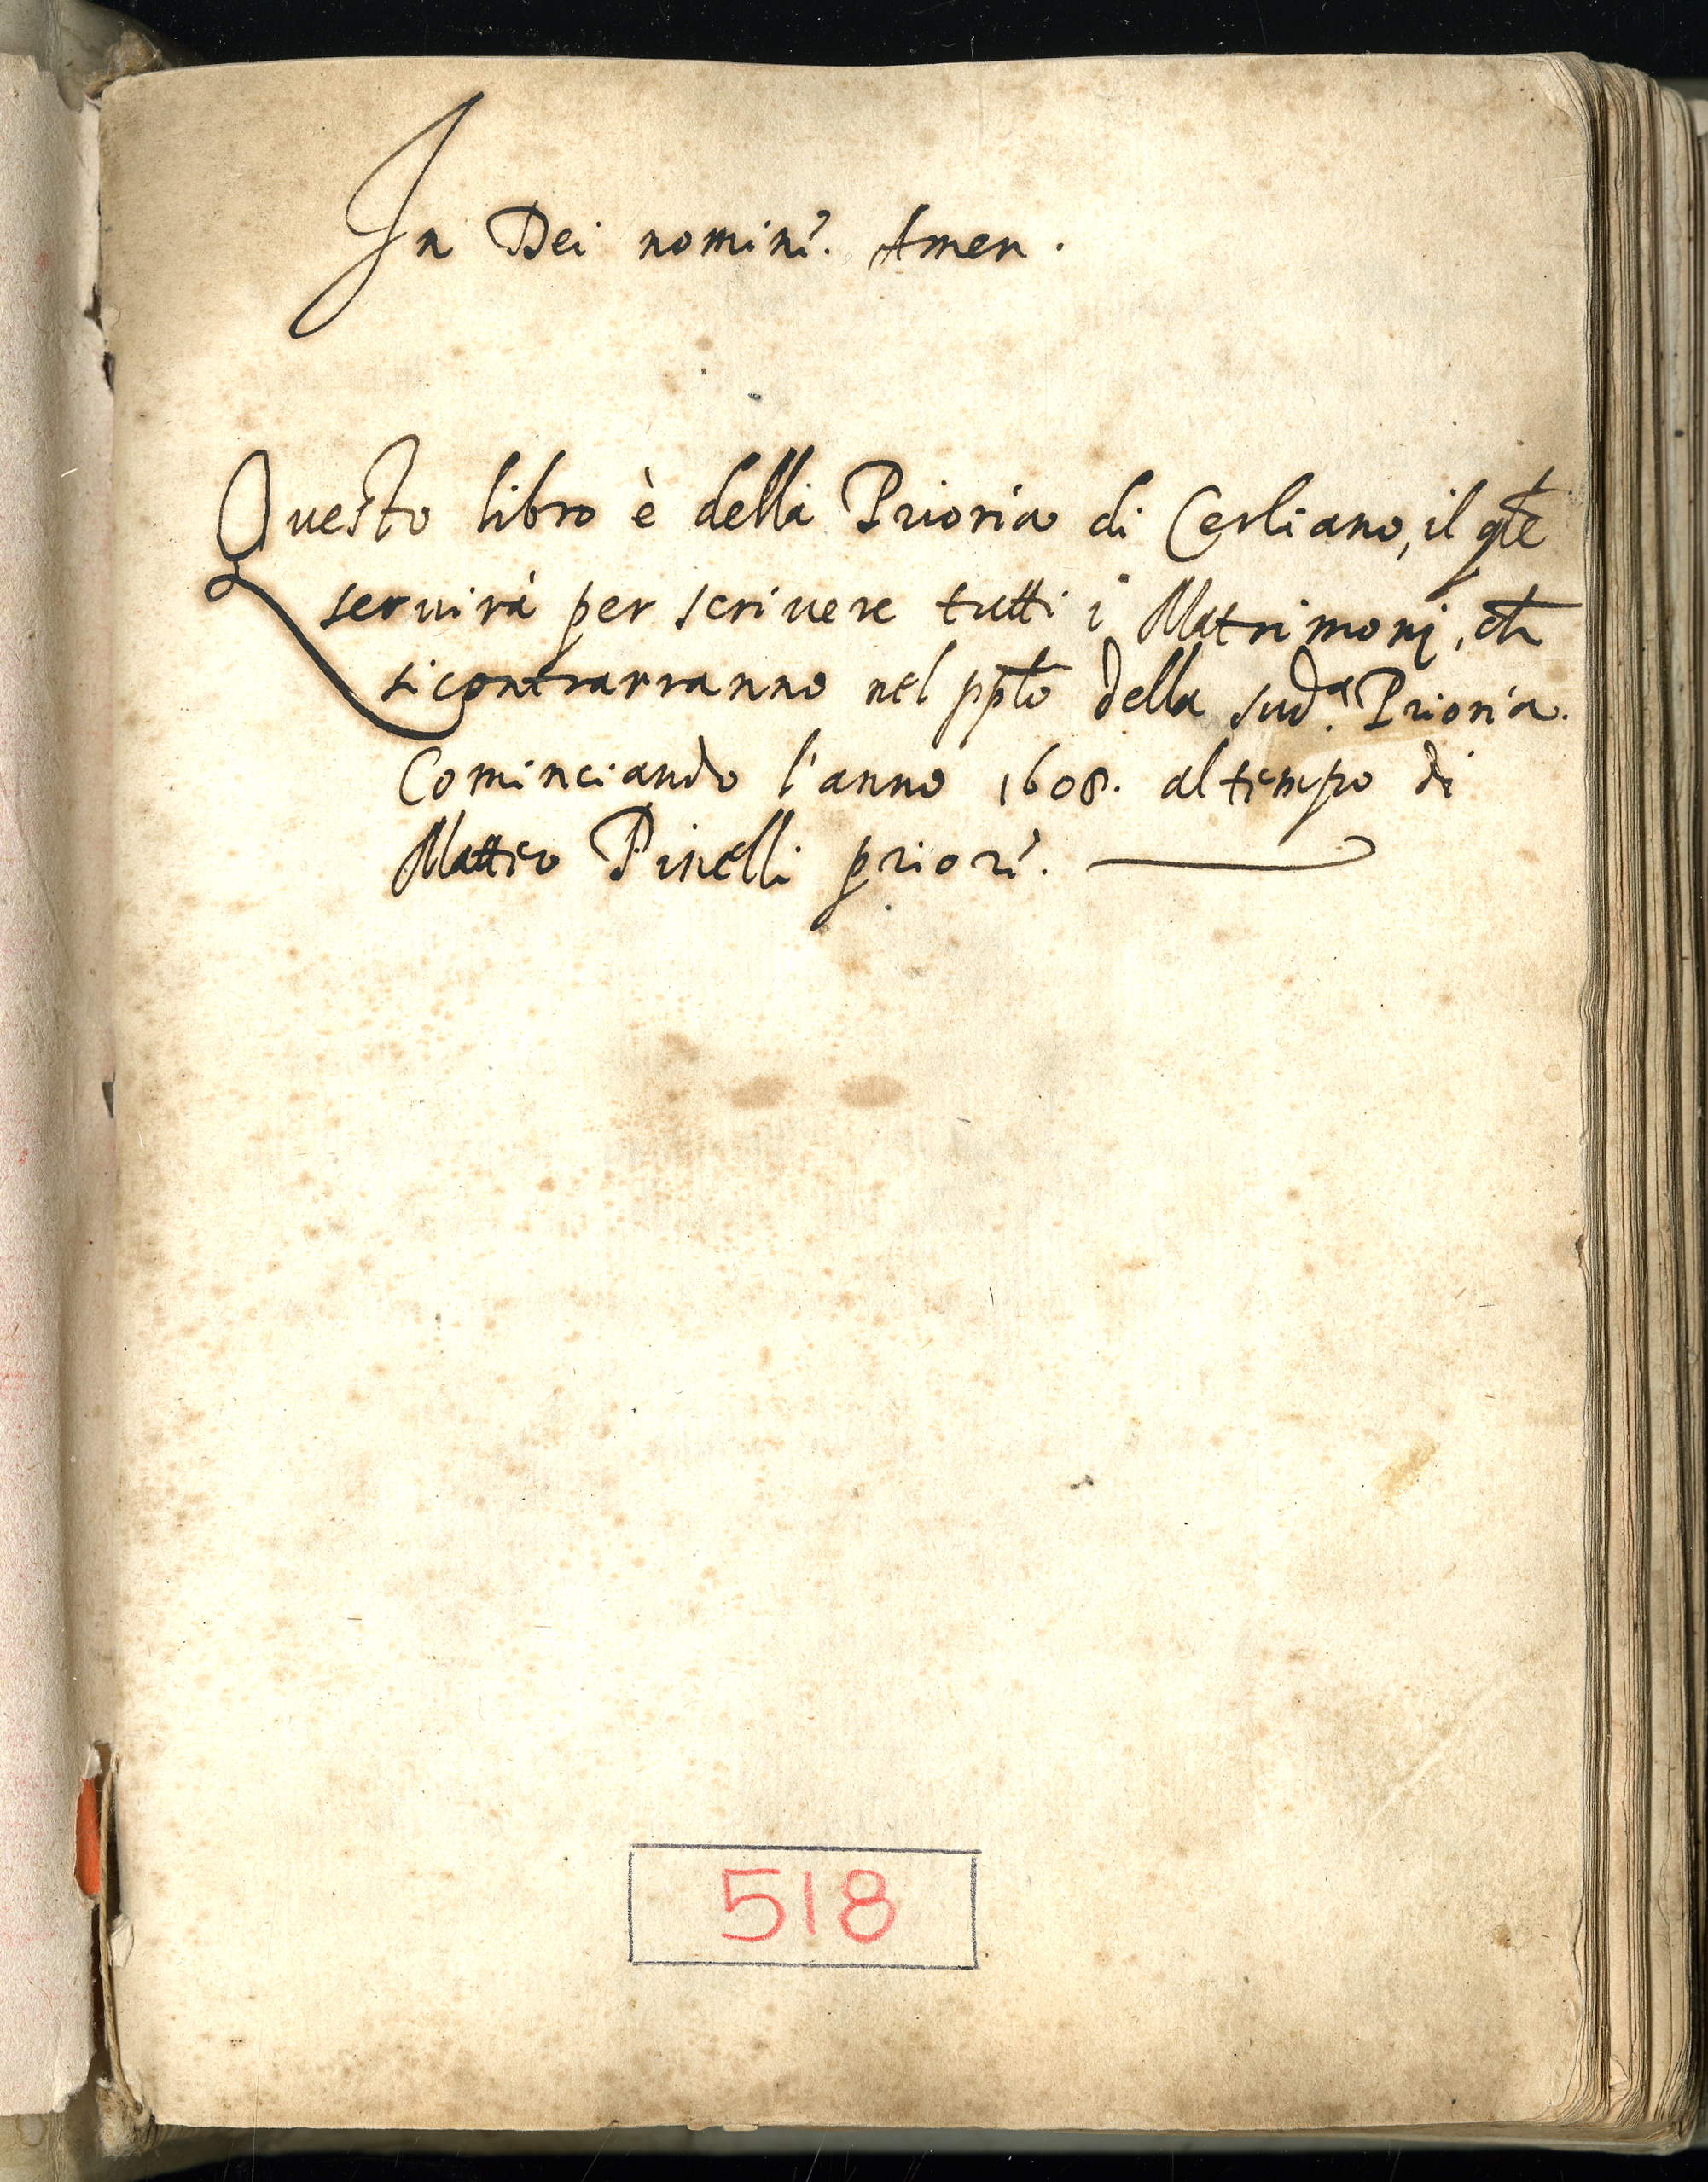 In Dei nomine. Amen.
Questo libro è della Prioria di Cerliano, il qle
servirà per scrivere tutti i Matrimonj, ch
si contrarranno nel pplo della sud.ª Prioria.
Cominciando l'anno 1608. al tempo di
Matteo Pinelli priore.
518